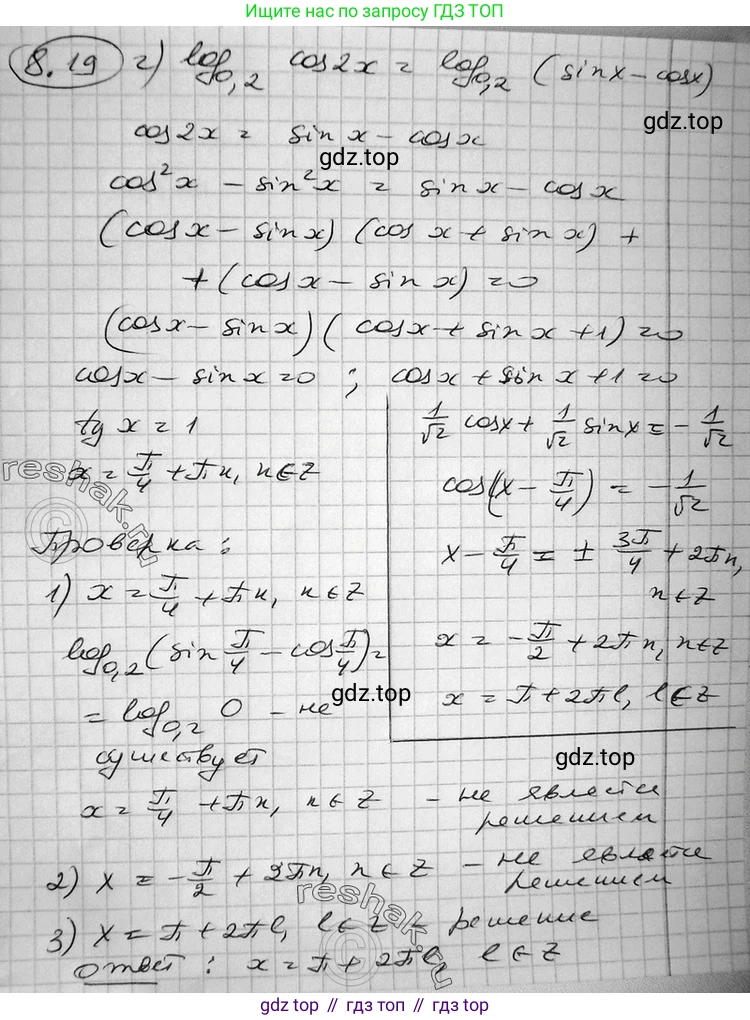 больше готовых ответов на сайте GDZ ТОП
8.19 г) log₀,₂ cos2x = log₀,₂ (sinx – cosx)
gdz.top
cos2x = sin x – cosx
gdz.top
cos²x – sin²x = sinx – cosx
(cosx – sinx) (cos x + sin x) +
+ (cosx – sinx) = 0
(cosx – sinx) (cosx + sinx + 1) = 0
cosx – sinx = 0 ; cosx + sin x + 1 = 0
tg x = 1
x = π/4 + πn, n ∈ Z
1/√2 cosx + 1/√2 sinx = – 1/√2
cos(x – π/4) = – 1/√2
gdz.top
x – π/4 = ± 3π/4 + 2πn,
n ∈ Z
x = – π/2 + 2πn, n ∈ Z
x = π + 2πl, l ∈ Z
reshak.ru
Проверка :
1) x = π/4 + πn, n ∈ Z
log₀,₂ (sin π/4 – cos π/4) =
gdz.top
= log₀,₂ 0 – не
существует
gdz.top
x = π/4 + πn, n ∈ Z – не является
решением
2) x = – π/2 + 2πn, n ∈ Z – не является
решением
3) x = π + 2πl, l ∈ Z – решение
ответ : x = π + 2πl, l ∈ Z
reshak.ru
gdz.top // гдз топ // gdz.top